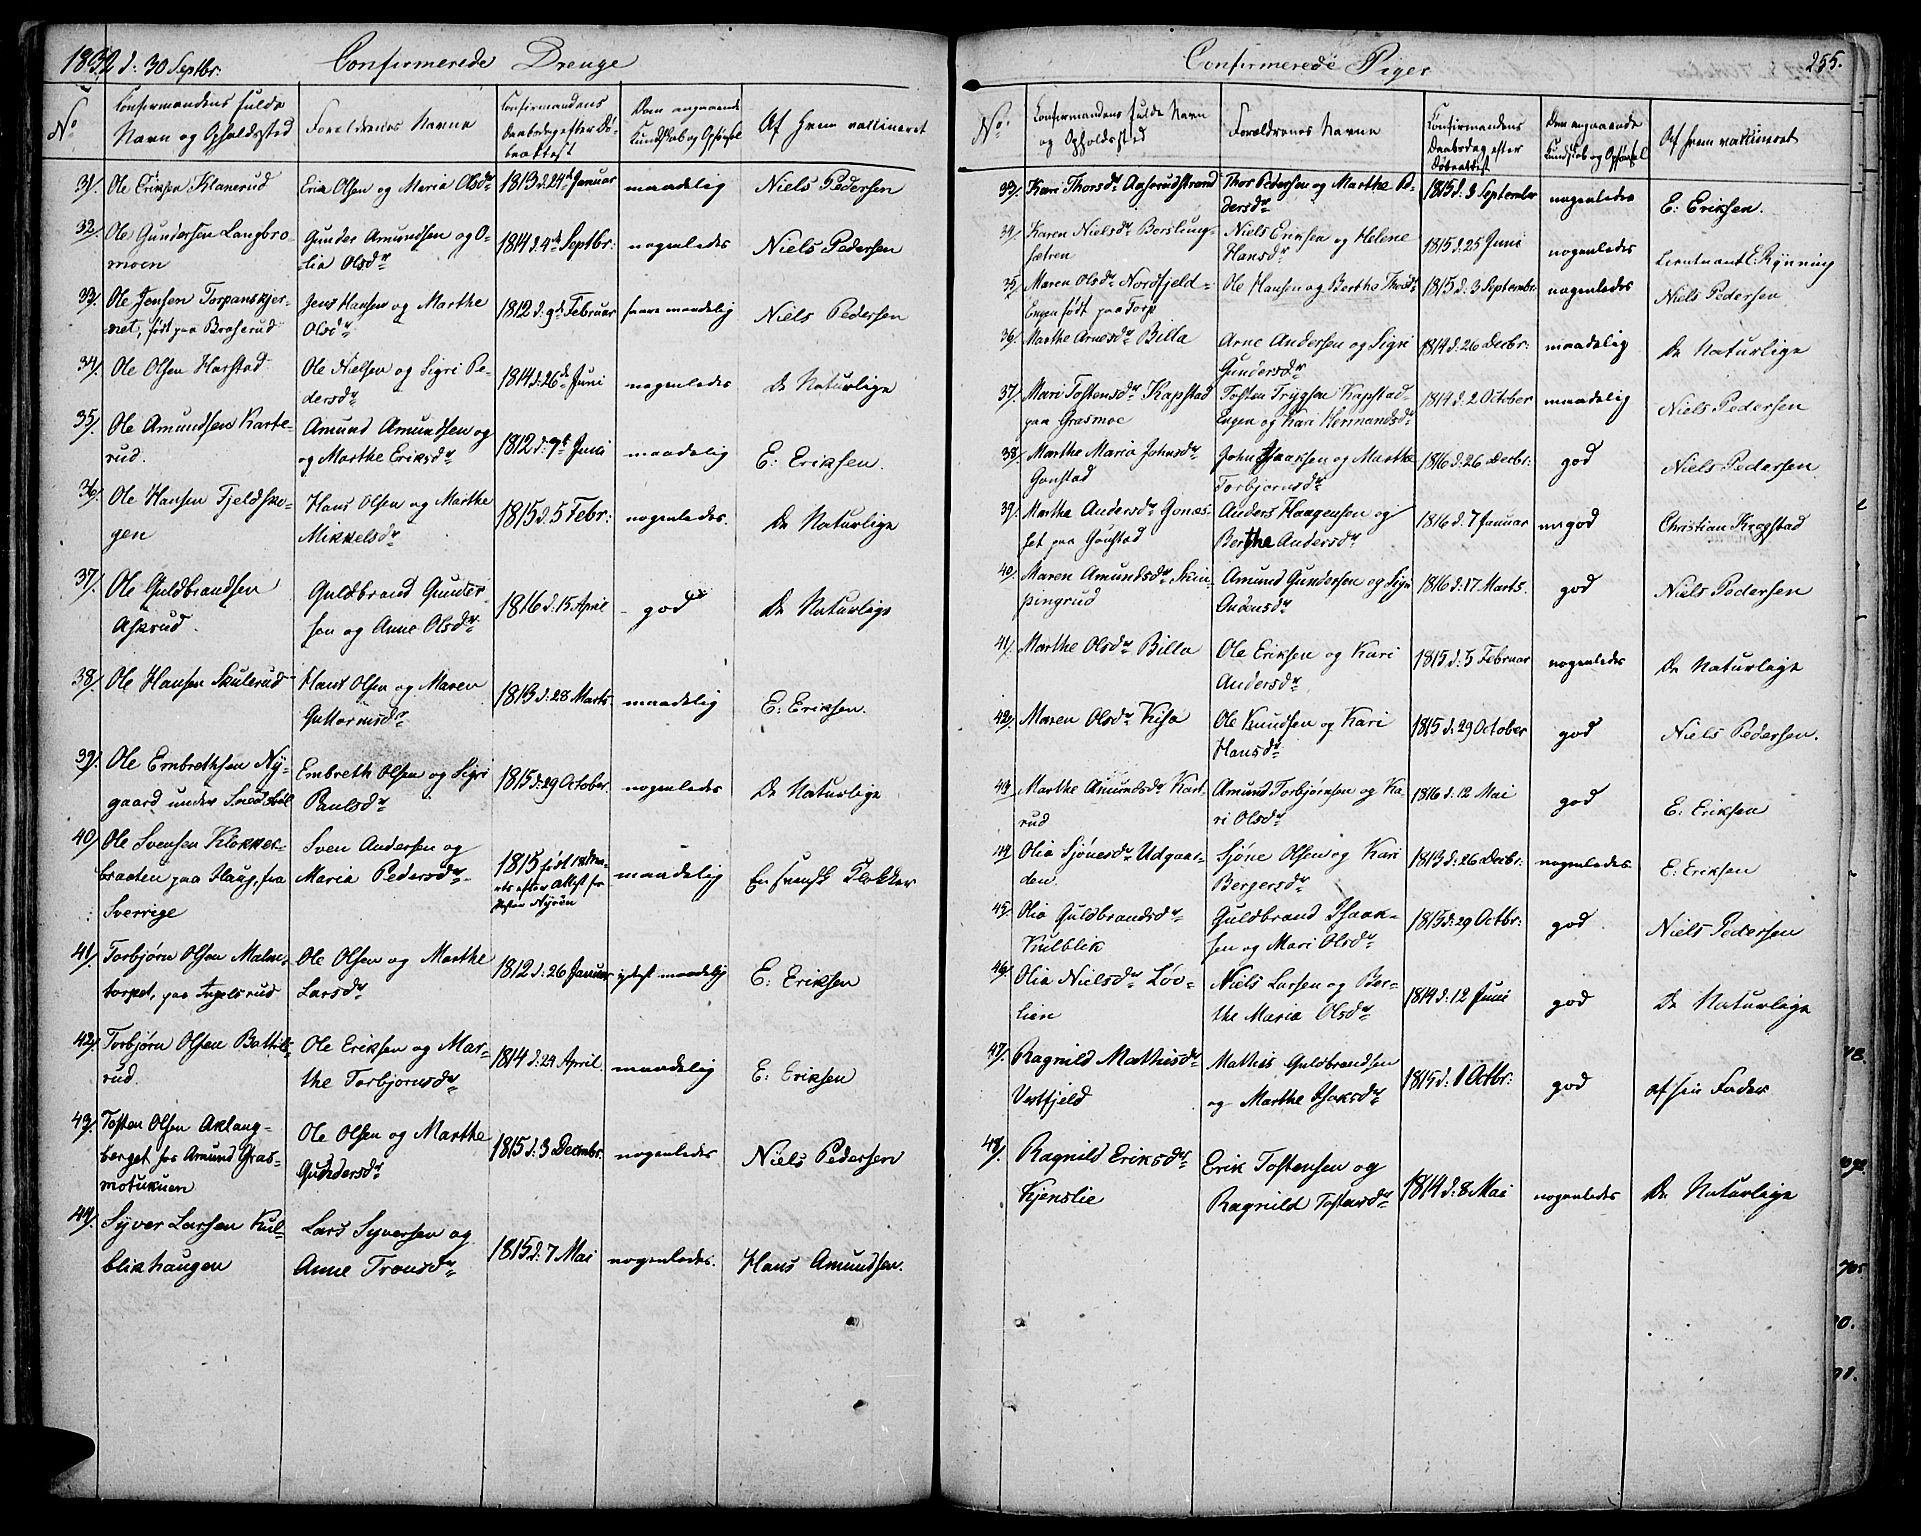 1832 d: 30 Septbr:
Confirmerede Drenge
No
Confirmandens fulde
Navn og Opholdssted
Forældrenes Navne
Confirmandens
Daabsdag efter Dø-
beattest
Dom angaaende
Kundskab og Opførsel
Af hvem vakcineret
31/. Ole Eriksen Klanerud
Erik Olsen og Maria Olsdr
1813 d. 24de Januar
maadelig
Niels Pedersen
32/. Ole Gundersen Langbro-
moen
Gunder Amundsen og O-
lia Olsdr
1814 d. 4de Septbr:
nogenledes
Niels Pedersen
33/. Ole Jensen Torpanskjer-
net, født paa Braserud
Jens Hansen og Marthe
Olsdr
1812 d. 9de Februar
saare maadelig
Niels Pedersen
34/. Ole Olsen Harstad
Ole Nielsen og Sigri Pe-
dersdr
1814 d: 26de Juni
nogenledes
De Naturlige
35/. Ole Amundsen Karte-
rud.
Amund Amundsen og
og Marthe Eriksdr
1812 d: 7de Juni
maadelig
E: Eriksen.
36/. Ole Hansen Fjeldsko-
gen
Hans Olsen og Marthe
Mikkelsdr
1815 d. 5 Febr:
nogenledes.
De Naturlige
37/. Ole Guldbrandsen
Askrud.
Guldbrand Gunder-
sen og Anne Olsdr
1816 d: 15 April
god
De Naturlige
38/. Ole Hansen Skulerud
Hans Olsen og Maren
Guttormsdr
1813 d: 28 Marts
maadelig
E: Eriksen.
39/. Ole Embrethsen Ny-
gaard under Sneedsbøl
Embreth Olsen og Sigri
Paulsdr
1815 d: 29 October.
nogenledes
De Naturlige
40/. Ole Svensen Klokker-
braaten paa Haug, fra
Sverrige
Sven Andersen og
Maria Pedersdr
1815 født
efter Attest fra
maadelig
En svensk Klokker
41/. Torbjørn Olsen Malme-
torpet, paa Ingelsrud
Ole Olsen og Marthe
Larsdr
1812 d: 26 Januar
maadelig
E: Eriksen
42/. Torbjørn Olsen Battil-
rud.
Ole Eriksen og Mar-
the Torbjornsdr
1814 d: 24 April
maadelig
E: Eriksen
43/. Tosten Olsen Aklang-
berget hos Amund Gras-
motukuen
Ole Olsen og Marthe
Gundersdr
1815 d: 3 Decmbr.
nogenledes
Niels Pedersen
44/. Syver Larsen Kul-
blikhaugen
Lars Syversen og
Anne Tronsdr
1815 d: 7 Mai
nogenledes.
Hans Amundsen.
Confirmerede Piger
255.
No.
Confirmandens fulde Navn
og Opholdssted
Forældrenes Navne
Confirmandens
Daabsdag efter
Døbeattest
Dom angaaende
Kundskab og Opførsel
Af hvem vakcineret
33/. Kari Thorsdr Aaserudstrand
Thor Pedersen og Marthe P-
dersdr
1815 d: 3 September
nogenledes
E: Eriksen.
34/. Karen Nielsdr Børslung-
sætren
Niels Eriksen og Helene
Hansdr
1815 d: 25 Juni
nogenledes
Lieutnant E. Rynning
35/. Maren Olsdr Nordfjeld-
Engen født paa Torp
Ole Hansen og Berthe Thordr
1815 d: 3 Septembr.
nogenledes
Niels Pedersen.
36/. Marthe Arnesdr Billa
Arne Andersen og Sigri
Gundersdr
1814 d: 26 Decbr:
maadelig
De Naturlige
37/. Mari Tostensdr Kapstad
paa Grasmoe
Tosten Trygsen Kapstad-
Engen og Kari Hermandsdr
1814 d: 2 October
maadelig
Niels Pedersen
38/. Marthe Maria Johnsdr
Gonstad
John Isaaksen og Marthe
Torbjornsdr
1816 d: 26 Decbr:
god
Niels Pedersen
39/. Marthe Andersdr Gonæs-
set paa Gonstad
Anders Haagensen og
Berthe Andersdr
1816 d. 7 Januar
meg. god
Christian Kragstad
40/. Maren Amundsdr Skin-
pingrud
Amund Gundersen og Signe
Andersdr
1816 d: 17 Marts.
god
Niels Pedersen
41/. Marthe Olsdr Billa
Ole Eriksen og Kari
Andersdr
1815 d: 5 Februar
nogenledes
De Naturlige
42/. Maren Olsdr Kisa
Ole Knudsen og Kari
Hansdr
1815 d: 29 October
god
Niels Pedersen.
43/. Marthe Amundsdr Kart-
rud
Amund Torbjørnsen og Ka-
ri Olsdr
1816 d: 12 Mai
god
E: Eriksen
44/. Olia Sjønesdr Udgaar-
den.
Sjøne Olsen og Kari
Bergersdr
1813 d: 26 Decbr:
nogenledes.
E: Eriksen
45/. Olia Guldbrandsdr
Kulblik
Guldbrand Isaak-
sen og Mari Olsdr
1815 d: 29 Octbr:
god.
Niels Pedersen
46/. Olia Nielsdr Løv-
lien
Niels Larsen og Ber-
the Maria Olsdr
1814 d: 12 Juni
god
De Naturlige
47/. Ragnild Mathisdr
Vestfjeld
Mathis Guldbrandsen
og Marthe Isaksdr
1815 d: 1 Octbr:
god
af sin Fader
48/. Ragnild Eriksdr
Kjenslie
Erik Tostensen og
Ragnild Tostensdr
1814 d: 8 Mai
nogenledes
De Naturlige